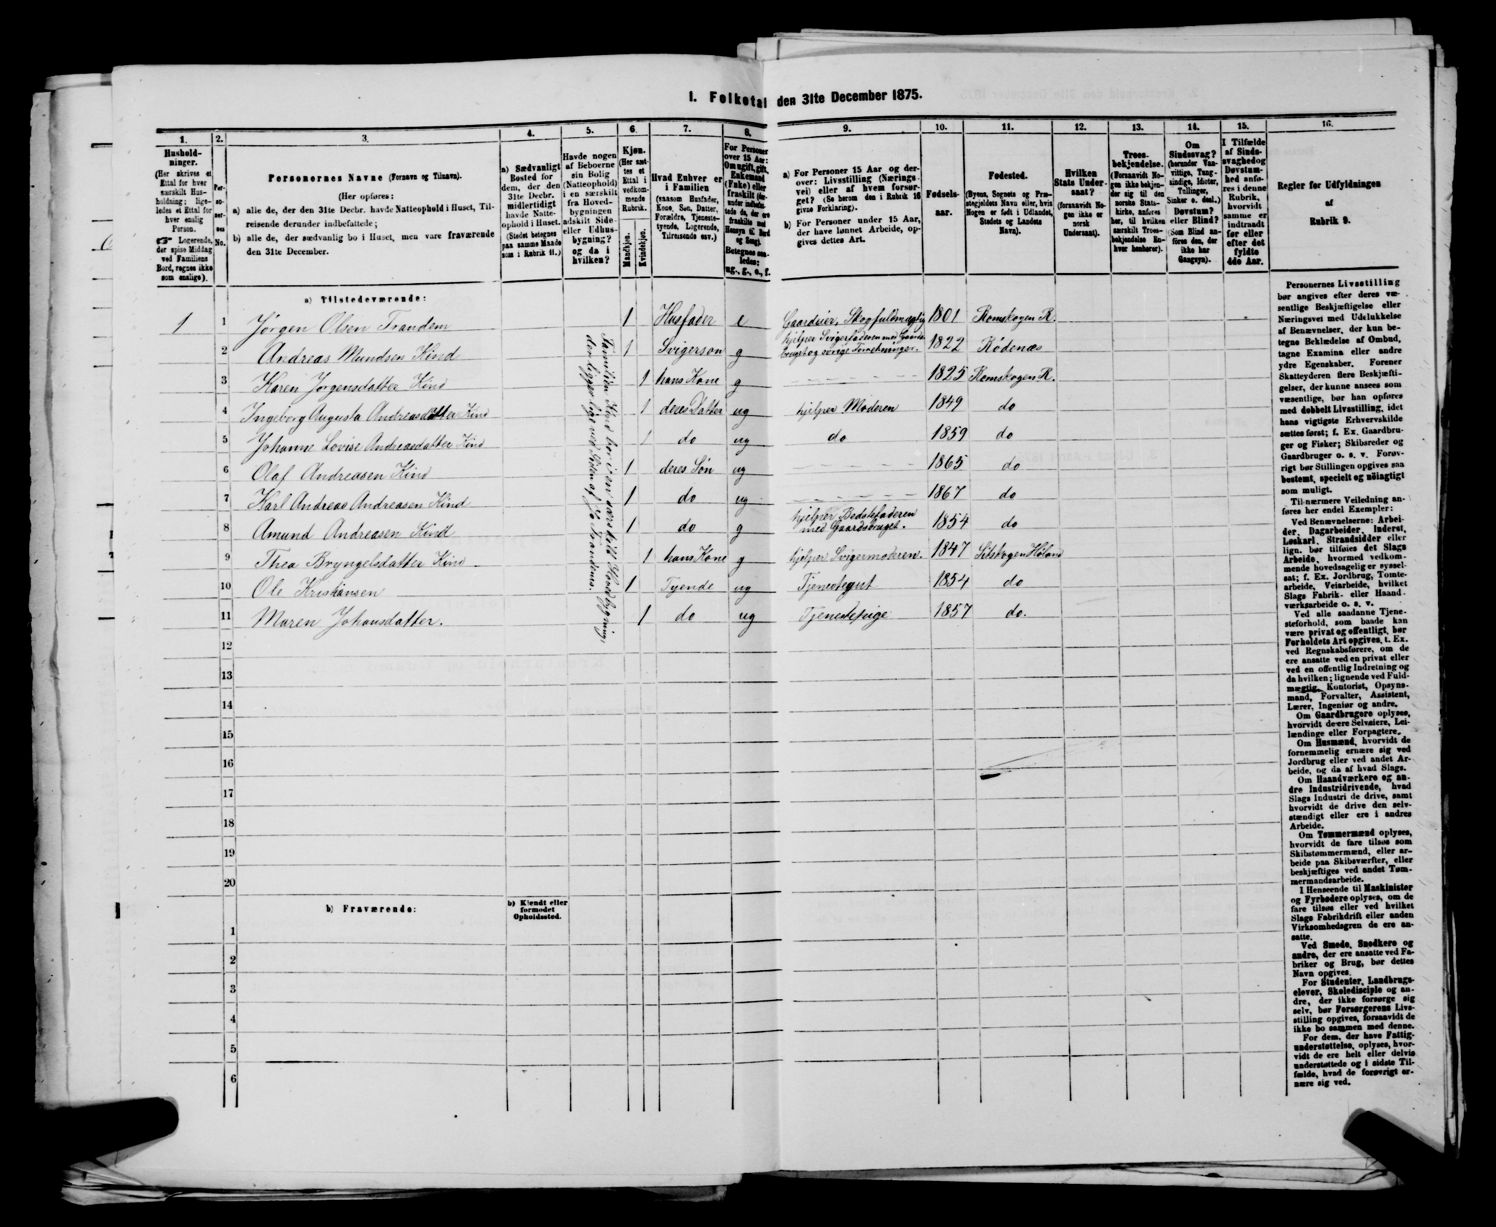 1. Folketal den 31te December 1875.
1.
Hushold-
ninger.
(Her skrives et
Ettal for hver
særskilt Hus-
holdning; lige-
ledes et Ettal for
hver enslig
Person.
☞ Logerende,
der spise Middag
ved Familiens
Bord, regnes ikke
som enslige).
2.
Per-
so-
ner-
nes
No.
3.
Personernes Navne (Fornavn og Tilnavn).
(Her opføres:
a) alle de, der den 31te Decbr. havde Natteophold i Huset, Til-
reisende derunder indbefattede;
b) alle de, der sædvanlig bo i Huset, men vare fraværende
den 31te December.
4.
a) Sædvanligt
Bosted for
dem, der den
31te Decbr.
midlertidigt
havde Natte-
ophold i Huset.
(Stedet betegnes
paa samme Maade
som i Rubrik 11.)
5.
Havde nogen
af Beboerne
sin Bolig
(Natteophold)
i en særskilt
fra Hoved-
bygningen
adskilt Side
eller Udhus-
bygning?
og da i
hvilken?
6.
Kjøn.
(Her sæt-
tes et
Ettal i
vedkom-
mende
Rubrik.
Mandkjøn.
Kvindekjøn.
7.
Hvad Enhver er
i Familien
(saasom Husfader,
Kone, Søn, Datter,
Forældre, Tjeneste-
tyende, Logerende,
Tilreisende osv.)
8.
For Personer
over 15 Aar:
Om ugift, gift,
Enkemand
(Enke) eller
fraskilt
Betegnes saa-
ledes:
ug., g., e., f.
9.
a) For Personer 15 Aar og der-
over: Livsstilling (Nærings-
vei) eller af hvem forsør-
get? (Se herom den i Rubrik 16
givne Forklaring).
b) For Personer under 15 Aar,
der have lønnet Arbeide, op-
gives dettes Art.
10.
Fødsels-
aar.
11.
Fødested.
(Byens, Sognets og Præ-
stegjeldets Navn eller, hvis
Nogen er født i Udlandet,
Stedets og Landets
Navn).
12.
Hvilken
Stats Under-
saat?
(forsaavidt No-
gen ikke er
norsk
Undersaat).
13.
Troes-
bekjendelse.
(Forsaavidt No-
gen ikke bekjen-
der sig til den
norske Stats-
kirke, anføres
her, til hvilken
særskilt Troes-
bekjendelse En-
hver henhører).
14.
Om
Sindssvag?
(herunder Van-
vittige, Tung-
sindige, Idioter,
Tullinger,
Sinker o. desl.)
Døvstum?
eller Blind?
(Som Blind an-
føres den, der
ikke har
Gangsyn).
15.
I Tilfælde
af Sinds-
svaghed og
Døvstum-
hed anfø-
res i denne
Rubrik,
hvorvidt
samme er
indtraadt
før eller
efter det
fyldte
4de Aar.
16.
Regler for Udfyldningen
af
Rubrik 9.
a) Tilstedeværende:
1 1 Jørgen Olsen Trandem 1 Husfader e Gaardeier, Skogfuldmægtig 1801 Romskogen R.
2 Andreas Mundsen Kind 1 Svigerson g hjelper Svigerfaderen med Gaards-
bruget og øvrige Forretninger. 1822 Rødenæs
3 Karen Jørgensdatter Kind 1 hans Kone g 1825 Romskogen R.
4 Ingeborg Augusta Andreasdatter Kind 1 deres Datter ug hjelper Moderen 1849 do
5 Johanne Lovise Andreasdatter Kind 1 do ug do 1859 do
6 Olaf Andreasen Kind 1 deres Søn ug 1865 do
7 Karl Andreas Andreasen Kind 1 do ug 1867 do
8 Amund Andreasen Kind 1 do g hjelper Bedstefaderen
med Gaardsbruget. 1854 do
9 Thea Bryngelsdatter Kind 1 hans Kone g hjelper Svigermoderen. 1847 Setskogen Høland
10 Ole Kristiansen 1 Tyende ug Tjenestegut 1854 do
11 Maren Johansdatter. 1 do ug Tjenestepige 1857 do.
Familien Kind bor i en særskilt Hovedbygning,
der ligger lige ved Siden af
12
13
14
15
16
17
18
19
20
b) Fraværende:
b) Kjendt eller
formodet
Opholdssted.
1
2
3
4
5
6
Personernes Livsstilling
bør angives efter deres væ-
sentlige Beskjæftigelse eller
Næringsvei med Udelukkelse
af Benævnelser, der kun be-
tegne Beklædelse af Ombud,
tagne Examina eller andre
ydre Egenskaber. Forener
Skatteyderen flere Beskjæfti-
gelser, der kunne ansees som
væsentlige, bør han opføres
med dobbelt Livsstilling, idet
hans vigtigste Erhvervskilde
sættes først; f. Ex. Gaardbru-
ger og Fisker; Skibsreder og
Gaardbruger o. s. v. Forøv-
rigt bør Stillingen opgives saa
bestemt, specielt og nøiagtigt
som muligt.
Til nærmere Veiledning an-
føres her endel Exempler:
Ved Benævnelserne: Arbei-
der, Dagarbeider, Inderst,
Løskarl, Strandsidder eller
lign. bør tilføies det Slags
Arbeide, hvormed vedkom-
mende hovedsagelig er syssel-
sat; f. Ex. Jordbrug, Tomte-
arbeide, Veiarbeide, hvilket
Slags Fabrik- eller Haand-
værksarbeide o. s. v.
Ved alle saadanne Tjene-
steforhold, som baade kan
være privat og offentligt, bør
Forholdets Art opgives, t. Ex.
ved Regnskabsførere, om de
ere ansatte ved en privat eller
ved en offentlig Indretning og
da hvilken; lignende ved Fuld-
mægtig, Kontorist, Opsyns-
mand, Forvalter, Assistent,
Lærer, Ingeniør og andre.
Om Gaardbrugere oplyses,
hvorvidt de ere Selveiere, Lei-
lændinge eller Forpagtere.
Om Husmænd, hvorvidt de
fornemmelig ernære sig ved
Jordbrug eller ved andet Ar-
beide, og da af hvad Slags.
Om Haandværkere og an-
dre Industridrivende, hvad
Slags Industri de drive, samt
hvorvidt de drive den selv-
stændigt eller ere i andres
Arbeide.
Om Tømmermænd oplyses,
hvorvidt de fare tilsøs som
Skibstømmermænd, eller ar-
beide paa Skibsværfter, eller
beskjæftiges ved andet Tøm-
mermandsarbeide.
I Henseende til Maskinister
og Fyrbødere oplyses, om de
fare tilsøs eller ved hvilket
Slags Fabrikdrift eller anden
Virksomhedsgren de ere an-
satte.
Ved Smede, Snedkere og
andre, der ere ansatte ved Fa-
briker og Brug, bør dettes
Navn opgives.
For Studenter, Landbrugs-
elever, Skoledisciple og an-
dre, der ikke forsørge sig
selv, bør Forsørgerens Livs-
stilling opgives, forsaavidt de
ikke bo sammen med denne.
For dem, der have Fattig-
understøttelse, oplyses, hvor-
vidt de ere helt eller delvis
understøttede og i sidste Til-
fælde, hvad de forøvrigt er-
nære sig ved.